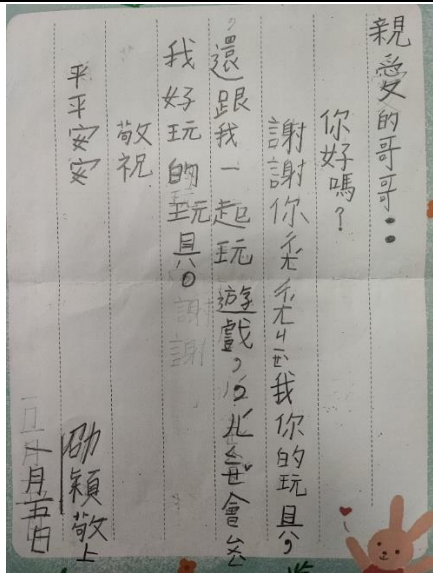 親愛的哥哥：
你好嗎？
謝謝你ㄔㄤˊㄔㄤˊㄐㄧㄝˋ我你的玩具，
還跟我一起玩遊戲，ㄦˊㄑㄧㄝˇ會
我好玩的玩具。謝謝
敬祝
平平安安
劭穎敬上
月五日